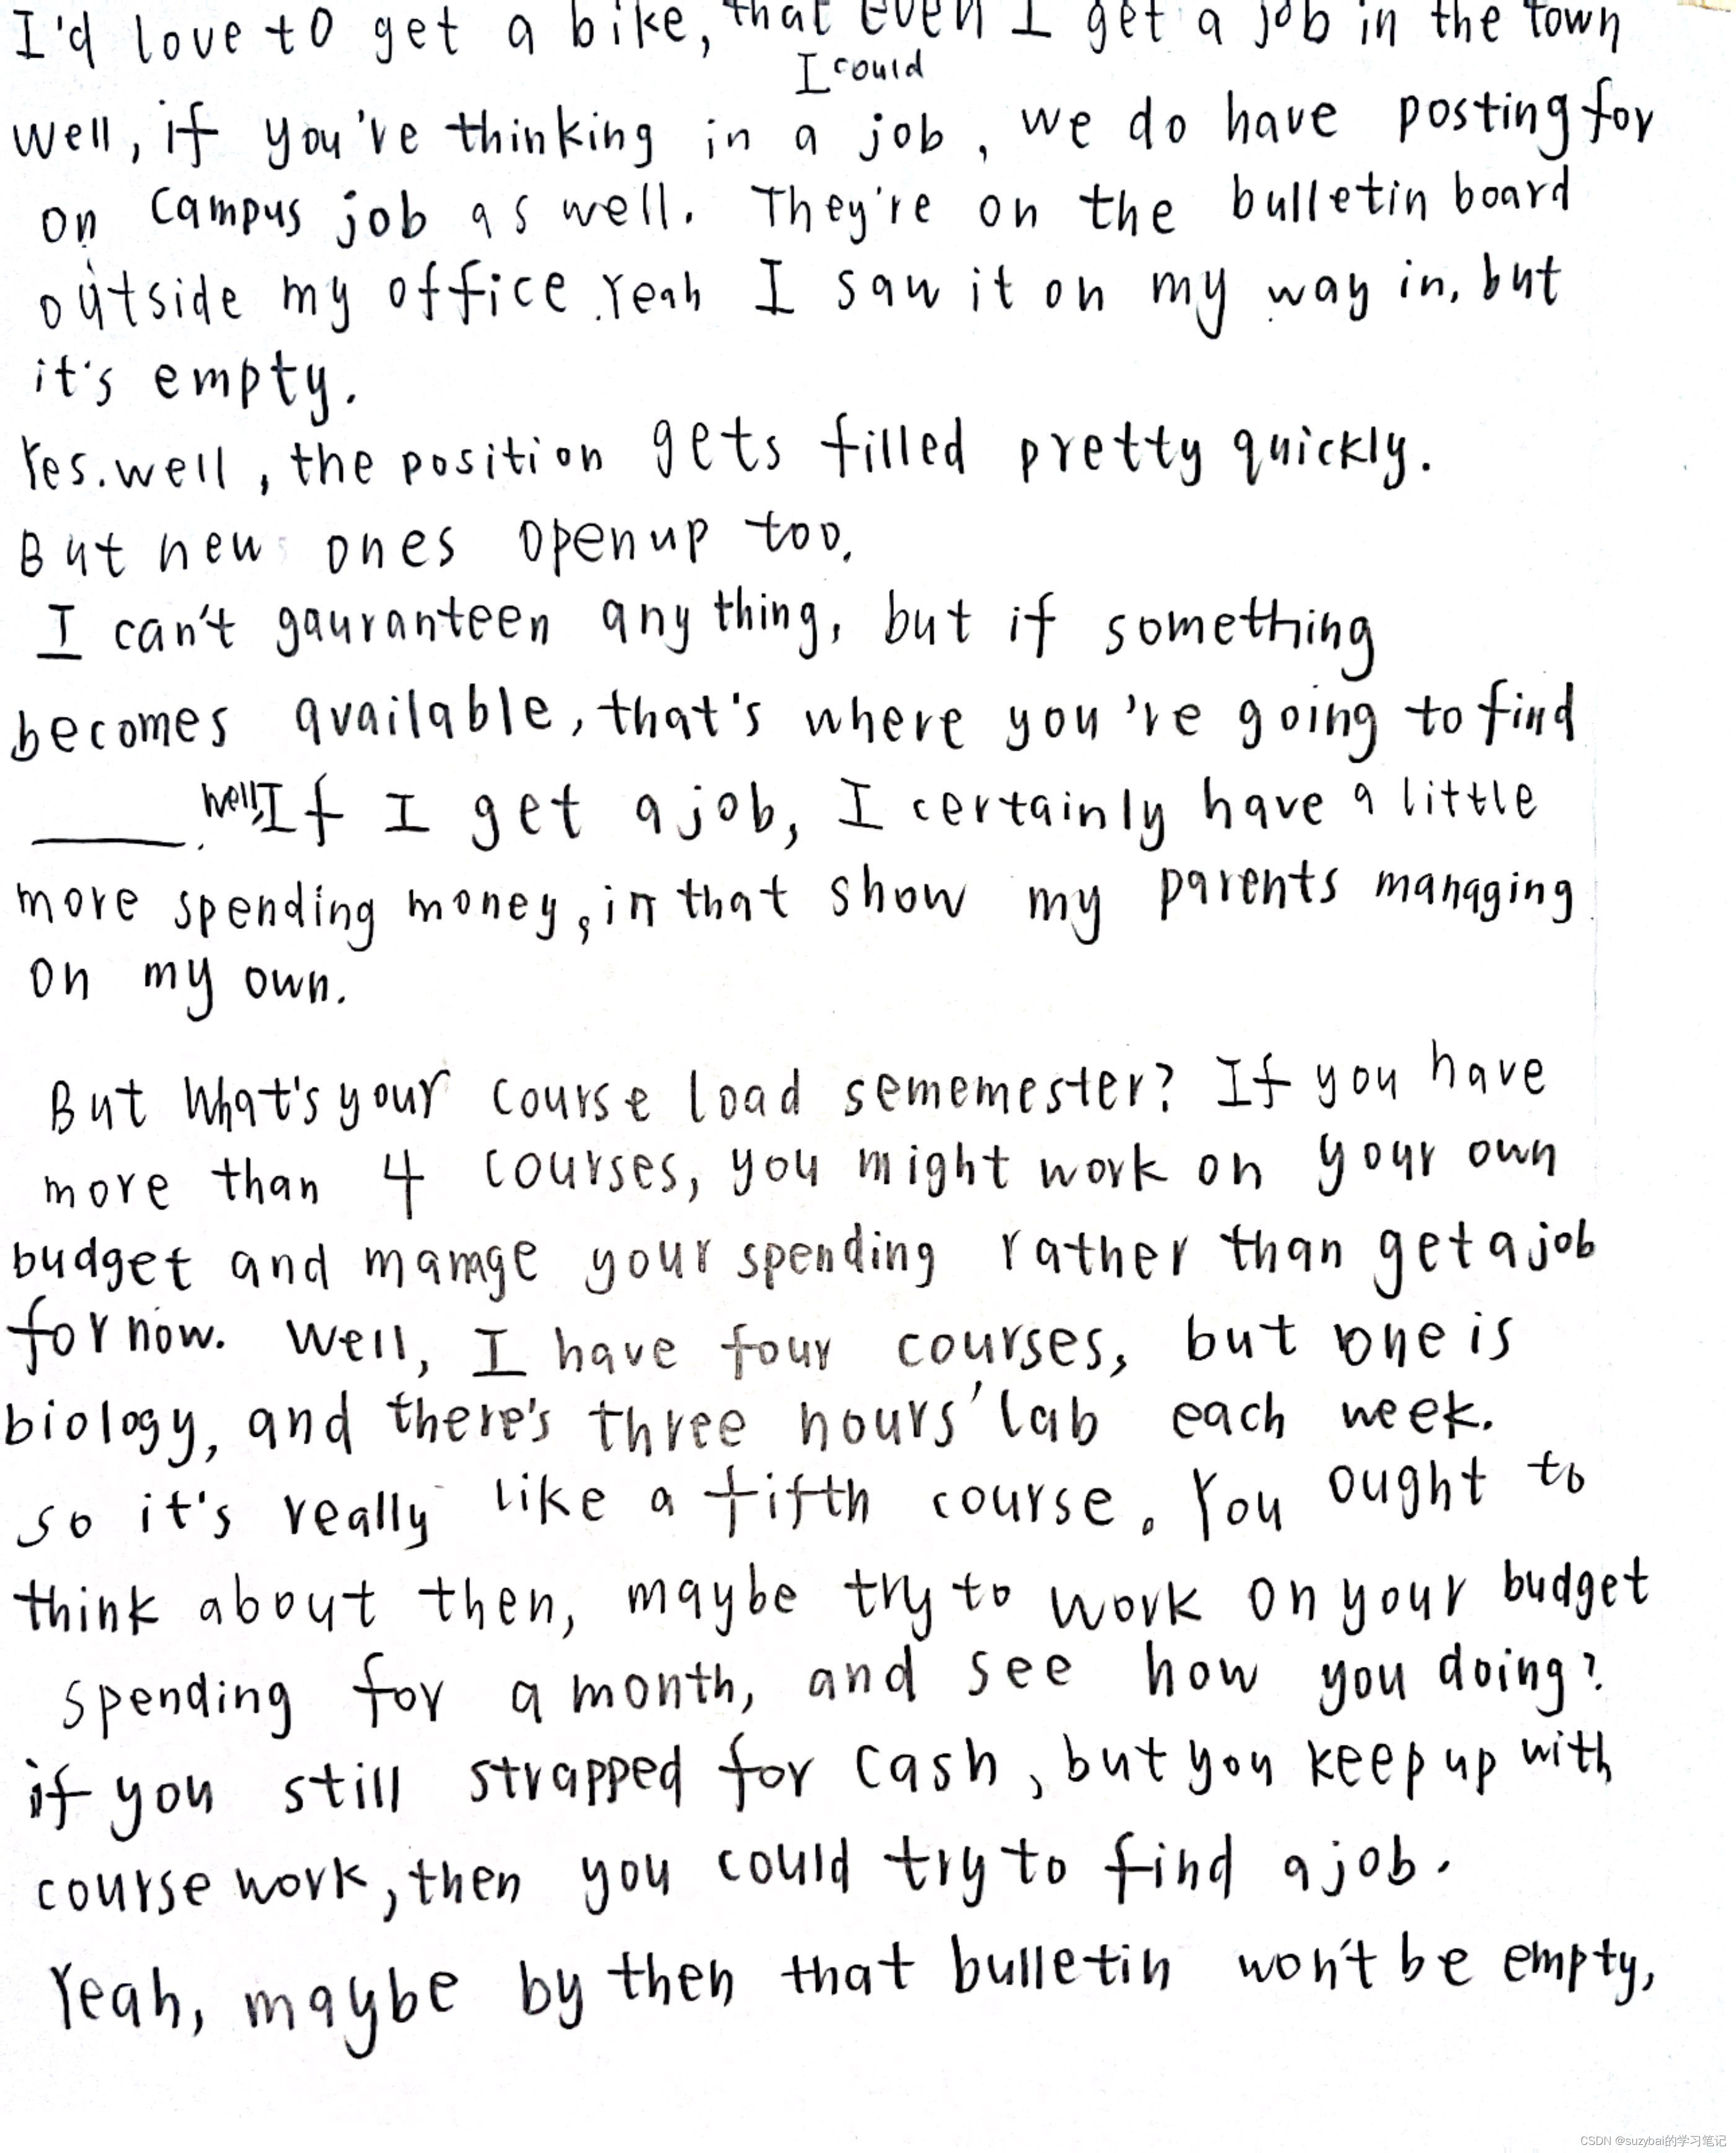 I'd love to get a bike, that even I get a job in the town
I could
well, if you've thinking in a job, we do have posting for
on campus job as well. They're on the bulletin board
outside my office. Yeah I saw it on my way in, but
it's empty.
Yes. well, the position gets filled pretty quickly.
But new ones open up too.
I can't gauranteen any thing, but if something
becomes available, that's where you're going to find
____. well, If I get a job, I certainly have a little
more spending money, in that show my parents managing
on my own.
But what's your course load sememester? If you have
more than 4 courses, you might work on your own
budget and manage your spending rather than get a job
for now. Well, I have four courses, but one is
biology, and there's three hours' lab each week.
so it's really like a fifth course. You ought to
think about then, maybe try to work on your budget
spending for a month, and see how you doing?
if you still strapped for cash, but you keep up with
course work, then you could try to find a job.
Yeah, maybe by then that bulletin won't be empty,
CSDN @suzybai的学习笔记